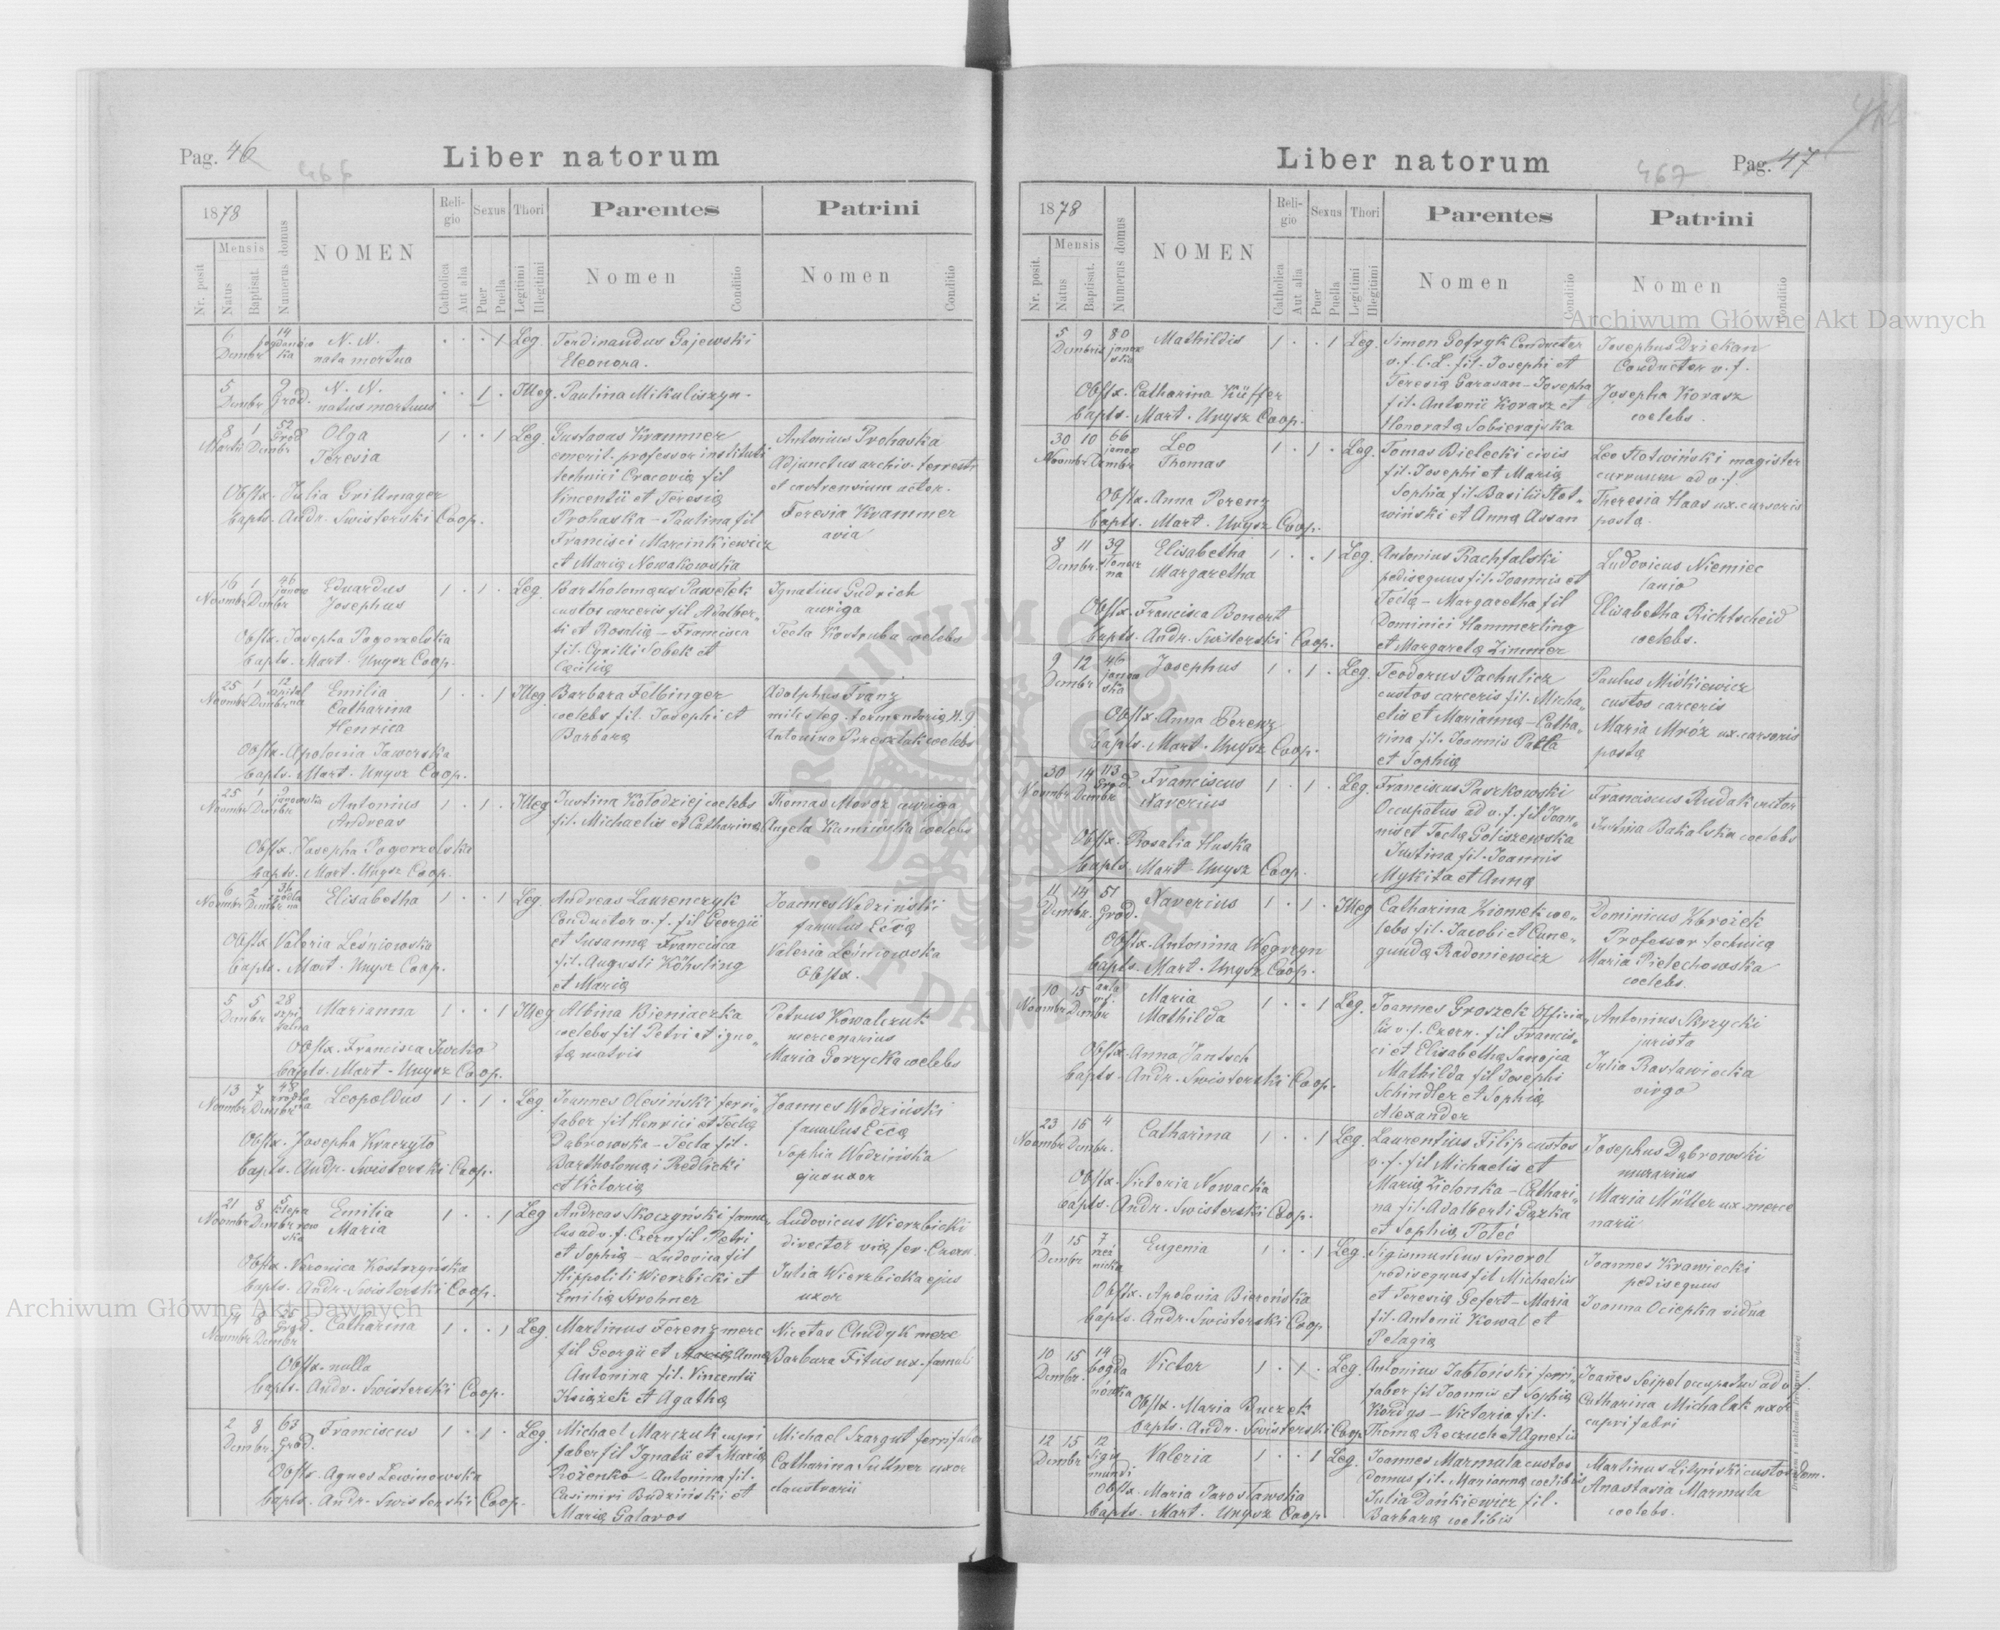 Pag. 46
466
Liber natorum
1878
Mensis
Nr. posit.
Natus
Baptisat.
Numerus domus
NOMEN
Religio
Catholica
Aut alia
Sexus
Puer
Puella
Thori
Legitimi
Illegitimi
Parentes
Nomen
Conditio
Patrini
Nomen
Conditio
6 Dcmbr 14
N. N.
nata mortua
1 Leg. Ferdinandus Gajewski
Eleonora.
5 Dcmbr 9 Gród.
N. N.
natus mortuus
1 Illeg. Paulina Mikuliszyn.
8 Martii 1 Dcmbr 52 Gród
Olga
Teresia
Obstx. Julia Grillmager
bapts. Andr. Swisterski Coop.
1 1 Leg. Gustavus Krammer
emerit. professor instituti
technici Cracovię fil
Vincentii et Teresię
Prohaska – Paulina fil
Francisci Marcinkiewicz
et Marię Nowakowska
Antonius Prohaska
Adjunctus archiv. terrestr
et castrensium actor.
Teresia Krammer
avia
16 Novmbr 1 Dcmbr 46 janow
Eduardus
Josephus
Obstx. Josepha Pogorzelska
bapts. Mart. Unysz Coop.
1 1 Leg. Bartholomęus Pawełek
custos carceris fil Adalber-
ti et Rosalię – Francisca
fil. Cyrilli Sobek et
Cęcilię
Ignatius Gudrich
auriga
Tecla Kostruba coelebs
25 Novmbr 1 Dcmbr 12
Emilia
Catharina
Henrica
Obstx. Apolonia Jaworska
bapts. Mart. Unysz Coop.
1 1 Illeg. Barbara Felbinger
coelebs fil. Josephi et
Barbarę
Adolphus Franz
miles leg. tormentorię N. 9
Antonina coelebs
25 Novmbr 1 Dcmbr 9 janowska
Antonius
Andreas
Obstx. Josepha Pogorzelska
bapts. Mart. Unysz Coop.
1 1 Illeg. Justina Kołodziej coelebs
fil. Michaelis et Catharinę
Thomas Moroz auriga
Angela Kamińska coelebs
6 Novmbr 2 Dcmbr 36
Elisabetha
Obstx. Valeria Leśniowska
bapts. Mart. Unysz Coop.
1 1 Leg. Andreas Laurenczyk
Conductor v. f. fil Georgii
et Susannę Francisca
fil. Augusti Köhsling
et Marię
Joannes Wodziński
famulus Eccę
Valeria Leśniowska
Obstx.
5 Dcmbr 5 28 szpitalna
Marianna
Obstx. Francisca Jurko
bapts. Mart. Unysz Coop.
1 1 Illeg. Albina Bieniaczka
coelebs fil Petri et igno-
tę matris
Petrus Kowalczuk
mercenarius
Maria Gorzycka coelebs
13 Novmbr 7 Dcmbr 48
Leopoldus
Obstx. Josepha Kraczyło
bapts. Andr. Swisterski Coop.
1 1 Leg. Joannes Olesiński ferri-
faber fil Henrici et Teclę
Dąbrowska – Tecla fil.
Bartholomęi Redlicki
et Victorię
Joannes Wodziński
famulus Eccę
Sophia Wodzińska
ejus uxor
21 Novmbr 8 Dcmbr 5
Emilia
Maria
Obstx. Veronica Kostrzyńska
bapts. Andr. Swisterski Coop.
1 1 Leg. Andreas Skoczyński famu-
lus ad v. f. Czern fil Petri
et Sophię – Ludovica fil
Hippoliti Wierzbicki et
Emilię Strohner
Ludovicus Wierzbicki
director vię fer. Czern.
Julia Wierzbicka ejus
uxor
Novmbr 8 Dcmbr Gród.
Catharina
Obstx. nulla
bapts. Andr. Swisterski Coop.
1 1 Leg. Martinus Ferenz merc
fil Georgii et Marię Annę
Antonina fil. Vincentii
Książek et Agathę
Nicetas Chudyk merc
Barbara Fitus ux. famuli
2 Dcmbr 8 63 Gród.
Franciscus
Obstx. Agnes Lewinowska
bapts. Andr. Swisterski Coop.
1 1 Leg. Michael Marczuk cupri
faber fil Ignatii et Marię
Rożenko – Antonina fil.
Casimiri Budziński et
Marię Galaros
Michael Szargut ferrifaber
Catharina Suttner uxor
claustrarii
Pag. 47
467
Liber natorum
1878
Mensis
Nr. posit.
Natus
Baptisat.
Numerus domus
NOMEN
Religio
Catholica
Aut alia
Sexus
Puer
Puella
Thori
Legitimi
Illegitimi
Parentes
Nomen
Conditio
Patrini
Nomen
Conditio
5 9 Dcmbris 80 janowska
Mathildis
Obstx. Catharina Küffer
bapts. Mart. Unysz Coop.
1 1 Leg. Simon Gofryk Conductor
v. f. C. L. fil. Josephi et
Teresię Garasan – Josepha
fil. Antonii Korasz et
Honoratę Sobierajska
Josephus Dziekan
Conductor v. f.
Josepha Korasz
coelebs.
30 Novmbr 10 Dcmbr 66 janow
Leo
Thomas
Obstx. Anna Perenz
bapts. Mart. Unysz Coop.
1 1 Leg. Tomas Bielecki civis
fil. Josephi et Marię
Sophia fil. Basilii Stot-
wiński et Annę Assan
Leo Stotwiński magister
curruum ad v. f.
Theresia Haas ux. cursoris
postę.
8 Dcmbr. 11 39
Elisabetha
Margaretha
Obstx. Francisca Bonert
bapts. Andr. Swisterski Coop.
1 1 Leg. Antonius Rachfalski
pedisequus fil. Joannis et
Teclę – Margaretha fil
Dominici Hammerling
et Margaretę Zimmer
Ludovicus Niemiec
lanio
Elisabetha Richtscheid
coelebs.
9 Dcmbr 12 46 janowska
Josephus
Obstx. Anna Perenz
bapts. Mart. Unysz Coop.
1 1 Leg. Teodorus Pachulicz
custos carceris fil. Micha-
elis et Mariannę – Catha-
rina fil. Joannis Pałka
et Sophię
Paulus Miśkiewicz
custos carceris
Maria Mróz ux. cursoris
postę
30 Novmbr 14 Dcmbr 113 Gród.
Franciscus
Xaverius
Obstx. Rosalia Huska
bapts. Mart. Unysz Coop.
1 1 Leg. Franciscus Paszkowski
Occupatus ad v. f. fil Joan-
nis et Teclę Goliszewska
Justina fil. Joannis
Mykita et Annę
Franciscus Rudak
Justina Bakalska coelebs
11 Dcmbr. 14 51 Gród.
Xaverius
Obstx. Antonina Węgrzyn
bapts. Mart. Unysz Coop.
1 1 Illeg. Catharina Kiomek coe-
lebs fil. Jacobi et Cune-
gundę Radoniewicz
Dominicus Zbrożek
Professor technicę
Maria Pielechowska
coelebs.
10 Novmbr 15 Dcmbr
Maria
Mathilda
Obstx. Anna Jantsch
bapts. Andr. Swisterski Coop.
1 1 Leg. Joannes Groszek Officia-
lis v. f. Czern. fil Francis-
ci et Elisabethę Sanojca
Mathilda fil Josephi
Schindler et Sophię
Alexander
Antonius Skrzycki
jurista
Julia Rastawiecka
virgo
23 Novmbr 15 Dcmbr. 4
Catharina
Obstx. Victoria Nowacka
bapts. Andr. Swisterski Coop.
1 1 Leg. Laurentius Filip custos
v. f. fil Michaelis et
Marię Zielonka – Cathari-
na fil. Adalberti Gazka
et Sophię Poteć
Josephus Dąbrowski
murarius
Maria Müller ux. merce
narii
11 Dcmbr 15 7
Eugenia
Obstx. Apolonia Bierońska
bapts. Andr. Swisterski Coop.
1 1 Leg. Sigismundus Smorol
pedisequus fil Michaelis
et Teresię Gefert – Maria
fil. Antonii Kowal et
Pelagię
Joannes Krawiecki
pedisequus
Joanna Ociepka vidua
10 Dcmbr. 15 14
Victor
Obstx. Maria Buczek
bapts. Andr. Swisterski Coop
1 1 Leg. Antonius Jabłoński ferri-
faber fil Joannis et Sophię
Kordys – Victoria fil.
Thomę Reczuch et Agnetis
Joannes Seipel occupatus ad v. f.
Catharina Michalak uxor
cuprifabri
12 Dcmbr 15 12 Sigismundi
Valeria
Obstx. Maria Jarosławska
bapts. Mart. Unysz Coop
1 1 Leg. Joannes Marmula custos
domus fil. Mariannę coelibis
Julia Dańkiewicz fil.
Barbarę coelibis
Martinus Lityński custos dom.
Anastasia Marmula
coelebs.
Archiwum Główne Akt Dawnych
Archiwum Główne Akt Dawnych
ARCHIWUM GŁÓWNE AKT DAWNYCH